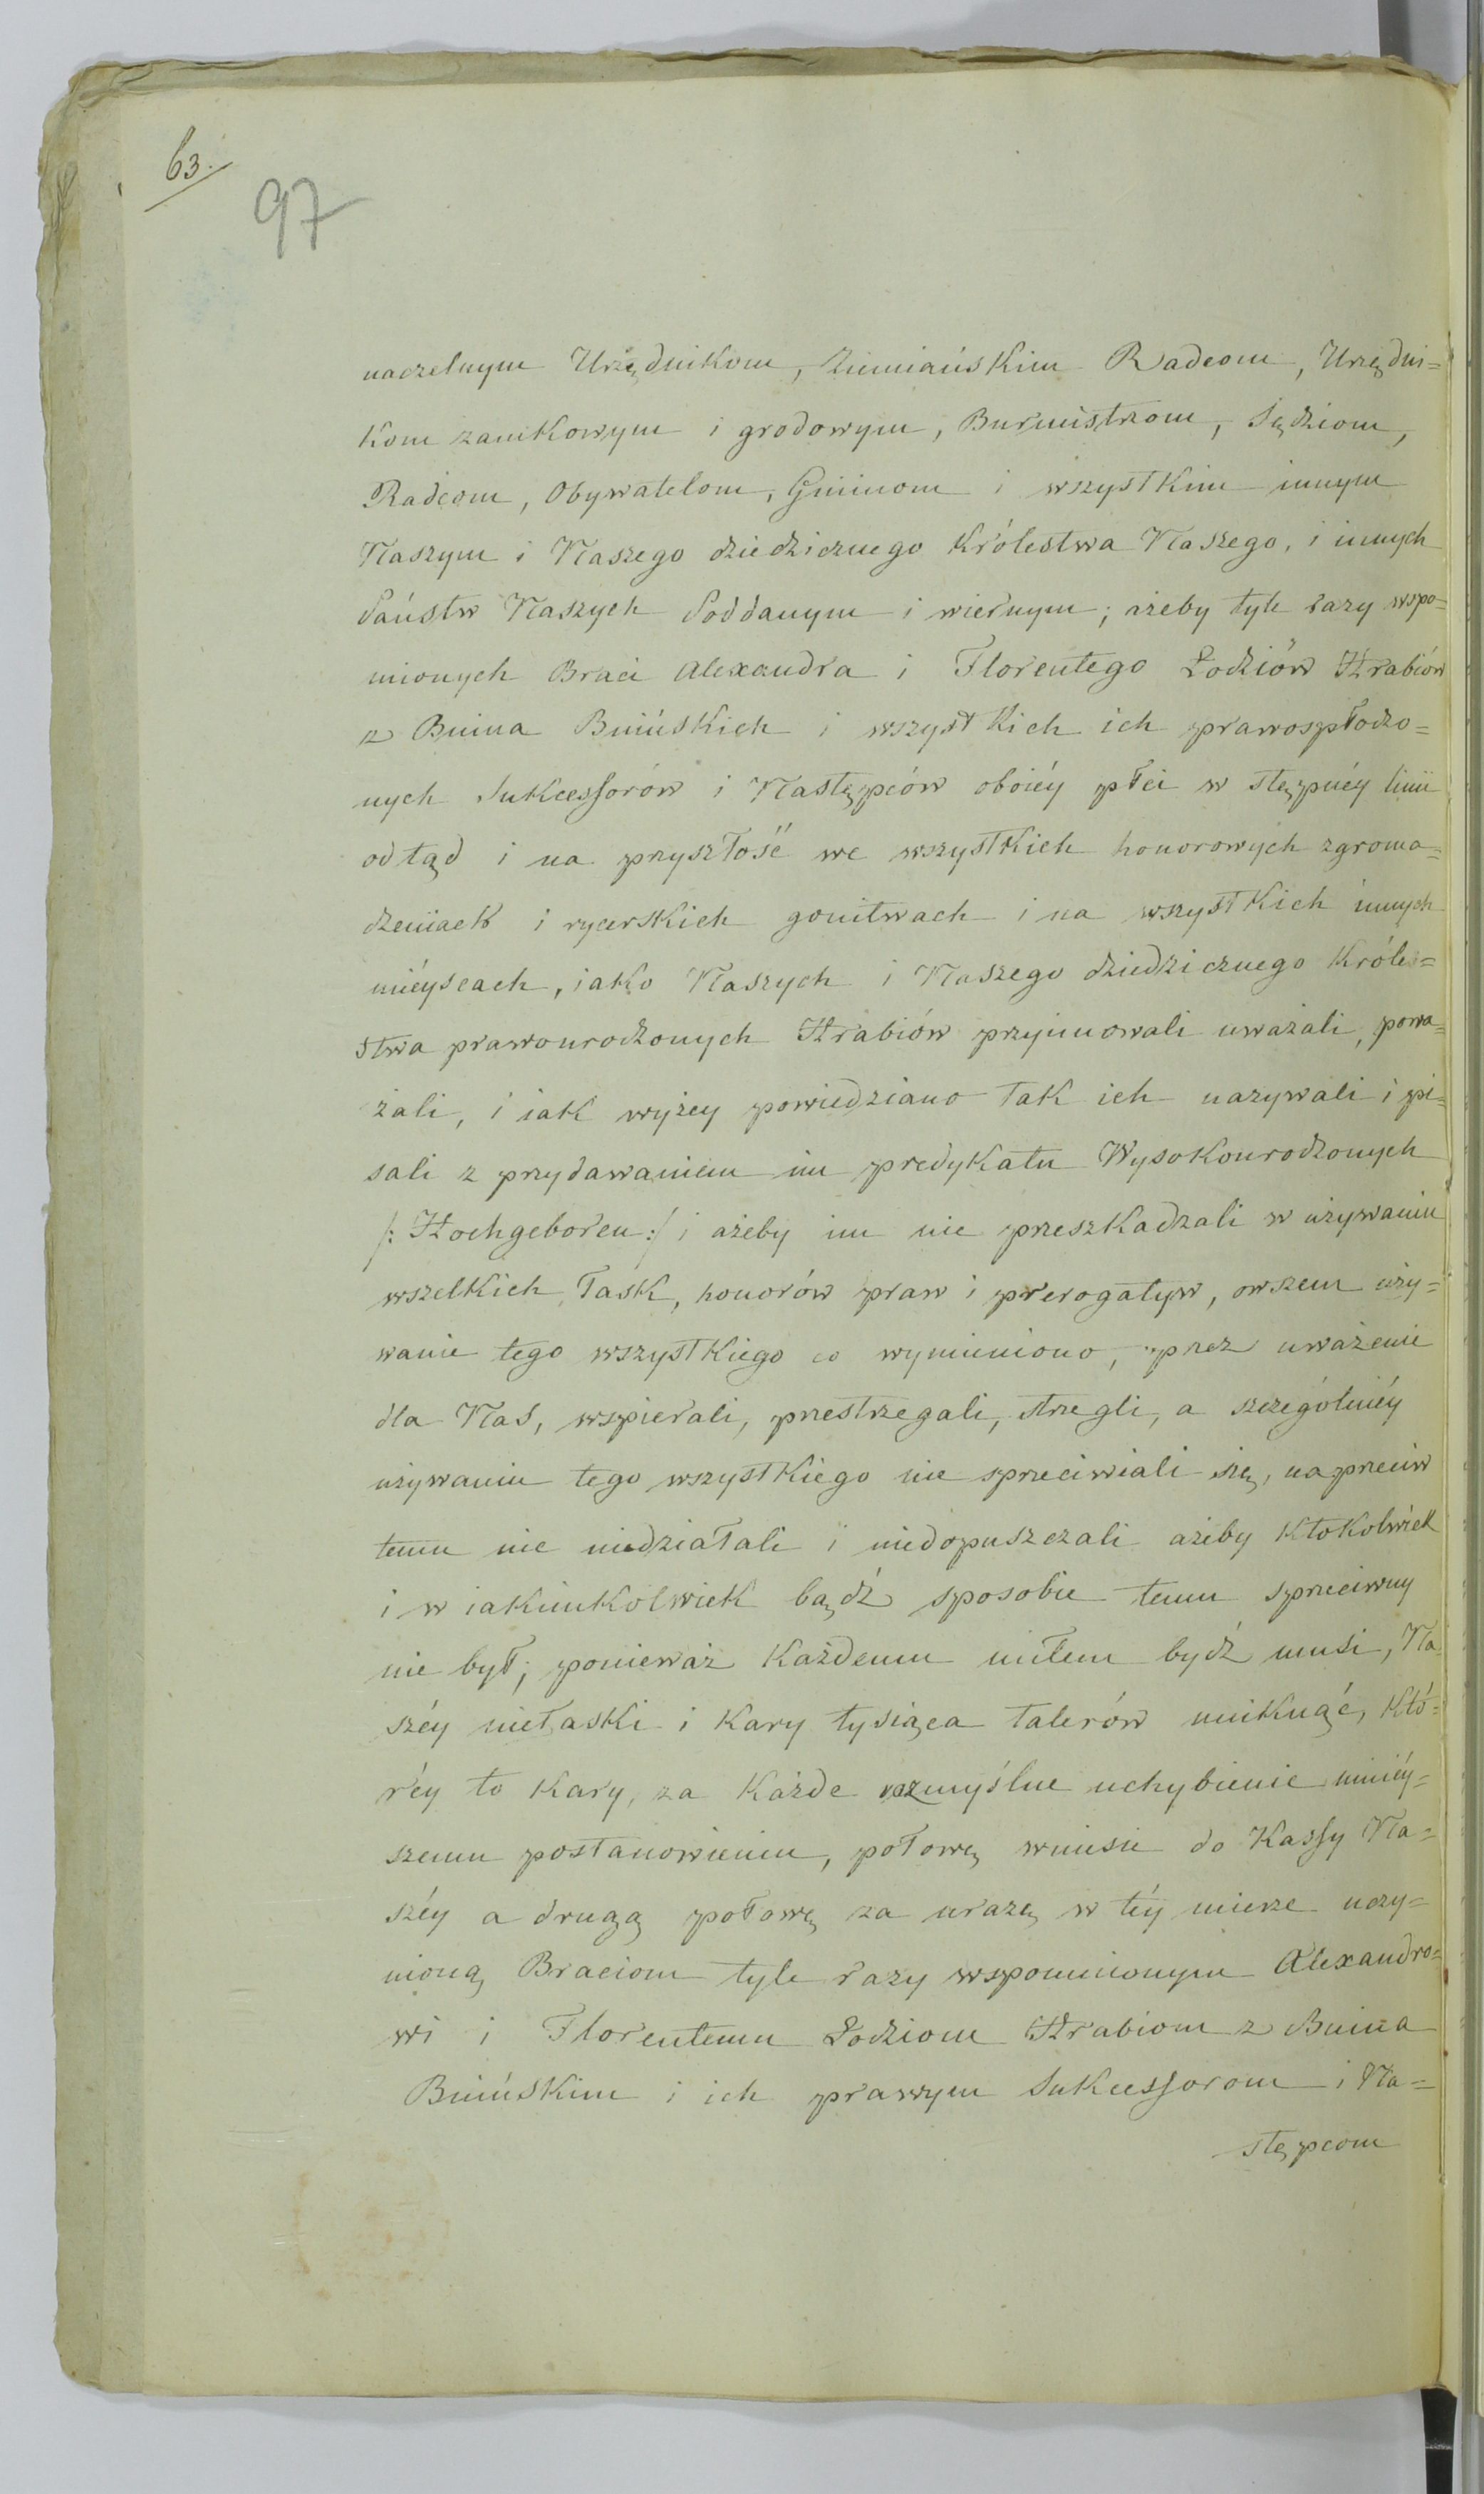 63.
97
naczelnym Urzędnikom, Ziemiańskim Radcom, Urzędni=
kom zamkowym i grodowym, Burmistrzom, Sędziom,
Radcom, Obywatelom, Gminom i wszystkim innym
Naszym i Naszego dziedzicznego Królestwa Naszego, i innych
Państw Naszych Poddanym i wiernym; ażeby tyle razy wspo=
mionych Braci Alexandra i Florentego Łodziów Hrabiów
z Bnina Bnińskich i wszystkich ich prawospłodzo=
nych Sukcessorów i Następców oboiéy płci w stępnéy linii
odtąd i na przyszłość we wszystkich honorowych zgroma=
dzeniach i rycerskich gonitwach i na wszystkich innych
miéyscach, iako Naszych i Naszego dziedzicznego Króle=
stwa prawourodzonych Hrabiów przyimowali uważali, powa=
żali, i iak wyżey powiedziano tak ich nazywali i pi=
sali z przydawaniem im predykatu Wysokourodzonych
/: Hochgeboren :/ i ażeby im nie przeszkadzali w używaniu
wszelkich łask, honorów praw i prerogatyw, owszem uży=
wanie tego wszystkiego co wymieniono, przez uważenie
dla Nas, wspierali, przestrzegali, strzegli, a szczególniéy
używaniu tego wszystkiego nie sprzeciwiali się, naprzeciw
temu nic niedziałali i niedopuszczali ażeby ktokolwiek
i w iakimkolwiek bądź sposobie temu sprzeciwny
nie był; ponieważ każdemu miłem bydź musi, Na
széy niełaski i kary tysiąca talerów uniknąć, któ=
réy to kary, za każde rozmyślne uchybienie niniéy=
szemu postanowieniu, połowę wniesie do Kassy Na=
széy a drugą połowę za urazę w téy mierze uczy=
nioną Braciom tyle razy wspomnionym Alexandro=
wi i Florentemu Łodziom Hrabiom z Bnina
Bnińskim i ich prawym Sukcessorom i Na=
stępcom